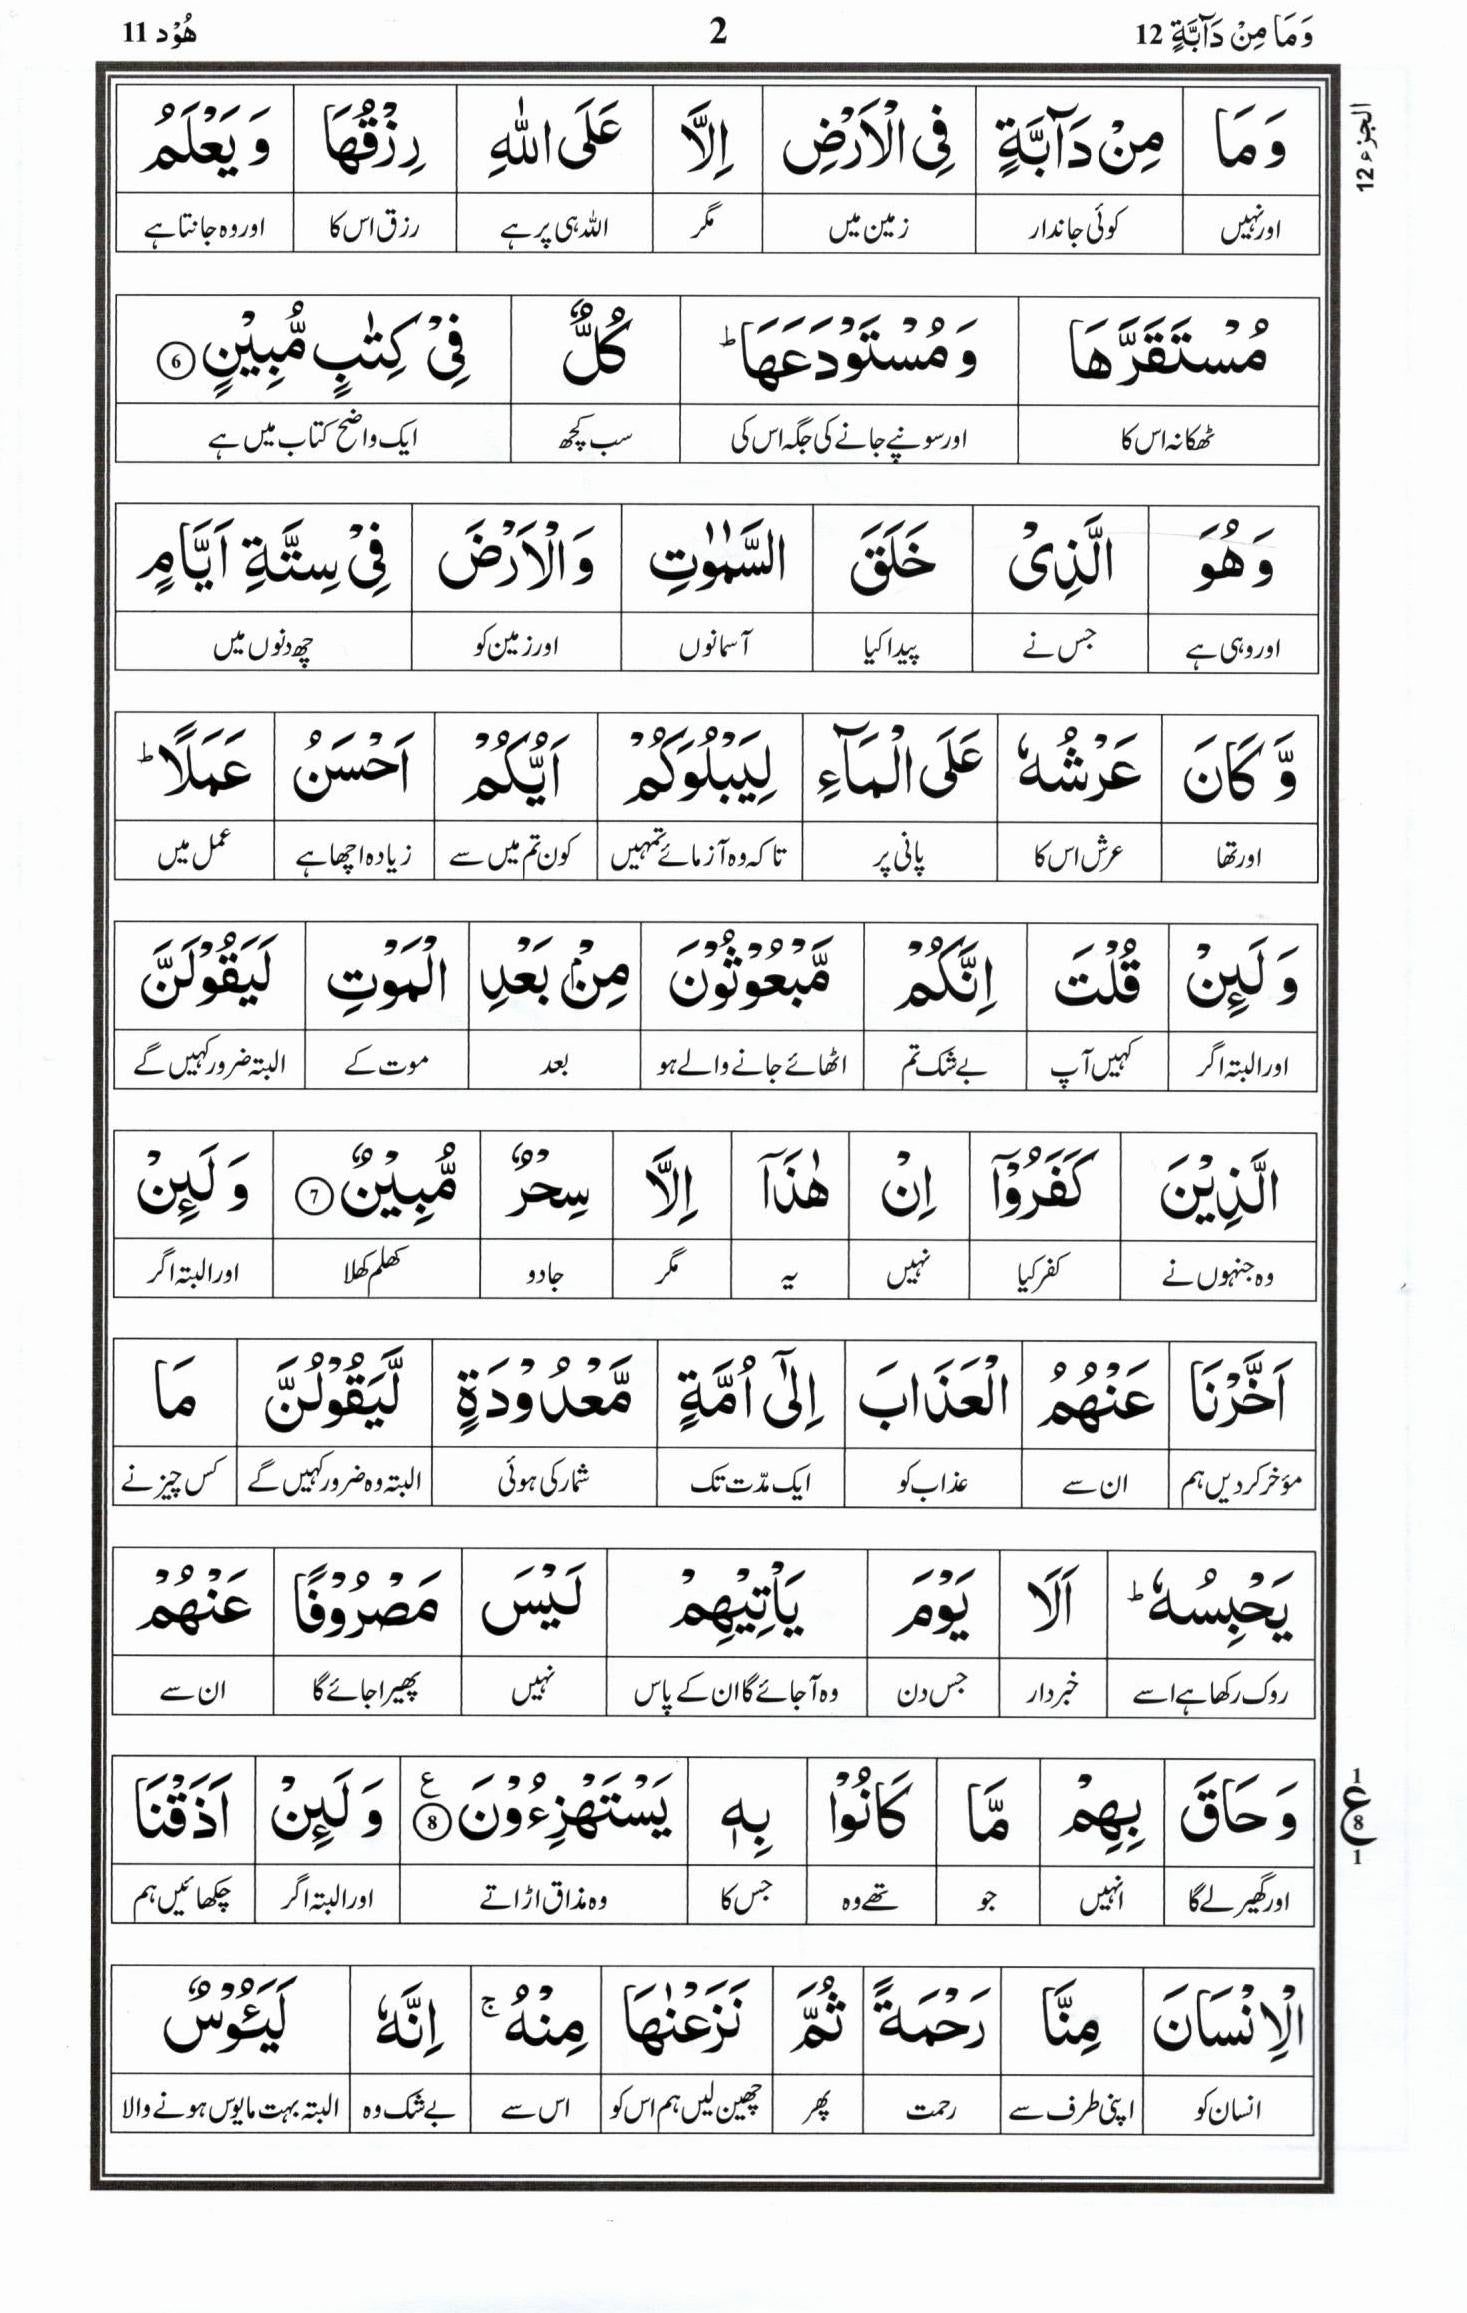 وَمَا مِنْ دَآبَّةٍ 12 2 هُوْد 11
الجزء 12
وَمَا مِنْ دَآبَّةٍ فِي الْاَرْضِ اِلَّا عَلَى اللّٰهِ رِزْقُهَا وَيَعْلَمُ
اور نہیں کوئی جاندار زمین میں مگر اللہ ہی پر ہے رزق اس کا اور وہ جانتا ہے
مُسْتَقَرَّهَا وَمُسْتَوْدَعَهَا ؕ كُلٌّ فِيْ كِتٰبٍ مُّبِيْنٍ 6
ٹھکانہ اس کا اور سونپے جانے کی جگہ اس کی سب کچھ ایک واضح کتاب میں ہے
وَهُوَ الَّذِيْ خَلَقَ السَّمٰوٰتِ وَالْاَرْضَ فِيْ سِتَّةِ اَيَّامٍ
اور وہی ہے جس نے پیدا کیا آسمانوں اور زمین کو چھ دنوں میں
وَّكَانَ عَرْشُهٗ عَلَى الْمَآءِ لِيَبْلُوَكُمْ اَيُّكُمْ اَحْسَنُ عَمَلًا ؕ
اور تھا عرش اس کا پانی پر تاکہ وہ آزمائے تمہیں کون تم میں سے زیادہ اچھا ہے عمل میں
وَلَئِنْ قُلْتَ اِنَّكُمْ مَّبْعُوْثُوْنَ مِنْۢ بَعْدِ الْمَوْتِ لَيَقُوْلَنَّ
اور البتہ اگر کہیں آپ بے شک تم اٹھائے جانے والے ہو بعد موت کے البتہ ضرور کہیں گے
الَّذِيْنَ كَفَرُوْٓا اِنْ هٰذَآ اِلَّا سِحْرٌ مُّبِيْنٌ 7 وَلَئِنْ
وہ جنہوں نے کفر کیا نہیں یہ مگر جادو کھلم کھلا اور البتہ اگر
اَخَّرْنَا عَنْهُمُ الْعَذَابَ اِلٰٓى اُمَّةٍ مَّعْدُوْدَةٍ لَّيَقُوْلُنَّ مَا
مؤخر کر دیں ہم ان سے عذاب کو ایک مدّت تک شمار کی ہوئی البتہ وہ ضرور کہیں گے کس چیز نے
يَحْبِسُهٗ ؕ اَلَا يَوْمَ يَاْتِيْهِمْ لَيْسَ مَصْرُوْفًا عَنْهُمْ
روک رکھا ہے اسے خبردار جس دن وہ آ جائے گا ان کے پاس نہیں پھیرا جائے گا ان سے
وَحَاقَ بِهِمْ مَّا كَانُوْا بِهٖ يَسْتَهْزِءُوْنَ 8 ع وَلَئِنْ اَذَقْنَا
1 ع 8 1
اور گھیر لے گا انہیں جو تھے وہ جس کا وہ مذاق اڑاتے اور البتہ اگر چکھائیں ہم
الْاِنْسَانَ مِنَّا رَحْمَةً ثُمَّ نَزَعْنٰهَا مِنْهُ ۚ اِنَّهٗ لَيَـُٔوْسٌ
انسان کو اپنی طرف سے رحمت پھر چھین لیں ہم اس کو اس سے بے شک وہ البتہ بہت مایوس ہونے والا